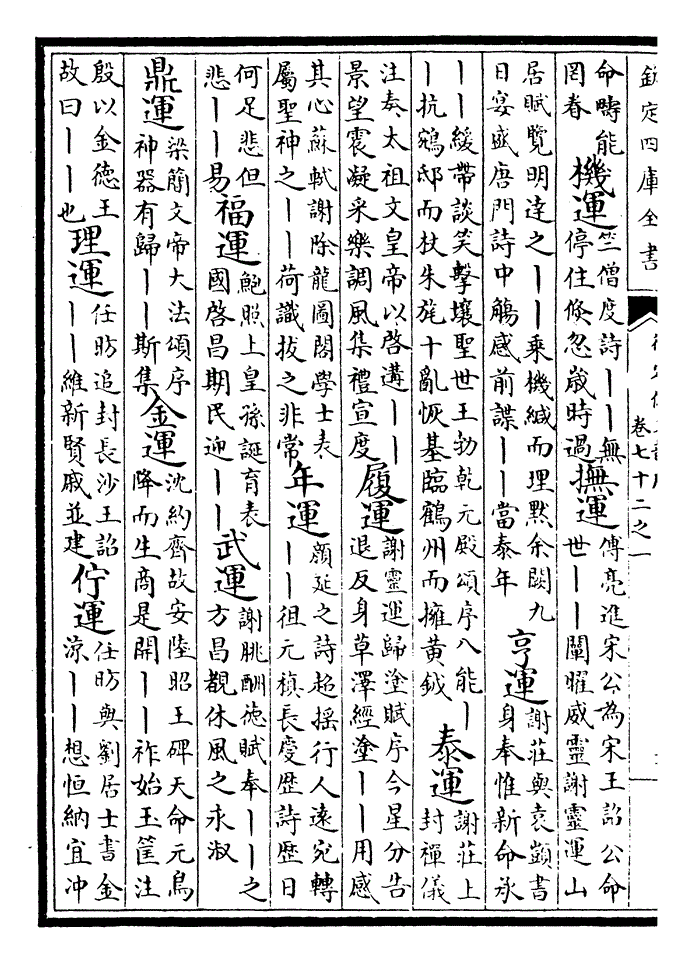 欽定四庫全書
卷七十二之一
命疇能
罔春
機運
竺僧度詩——無
停住倏忽歲時過
撫運
傅亮進宋公為宋王詔公命
世——闡曜威靈謝靈運山
居賦覽明達之——乘機緘而理默余闕九
日宴盛唐門詩中觴感前諜——當泰年
亨運
謝莊與袁顗書
身奉惟新命承
——緩帶談笑擊壤聖世王勃乾元殿頌序八能—
—抗鵷邸而杖朱旄十亂恢基臨鶴州而擁黃鉞
泰運
謝莊上
封禪儀
注奏太祖文皇帝以啓遘——
景望震凝采樂調風集禮宣度
履運
謝靈運歸塗賦序今星分告
退反身草澤經塗——用感
其心蘇軾謝除龍圖閣學士表
屬聖神之——荷識拔之非常
年運
顏延之詩超搖行人遠宛轉
——徂元稹長慶歷詩歷日
何足悲但
悲——易
福運
鮑照上皇孫誕育表
國啓昌期民迎——
武運
謝朓酬德賦奉——之
方昌覩休風之永淑
鼎運
梁簡文帝大法頌序
神器有歸——斯集
金運
沈約齊故安陸昭王碑天命元鳥
降而生商是開——祚始玉筐注
殷以金德王
故曰——也
理運
任昉追封長沙王詔
——維新賢戚並建
佇運
任昉與劉居士書金
涼——想恒納宜沖